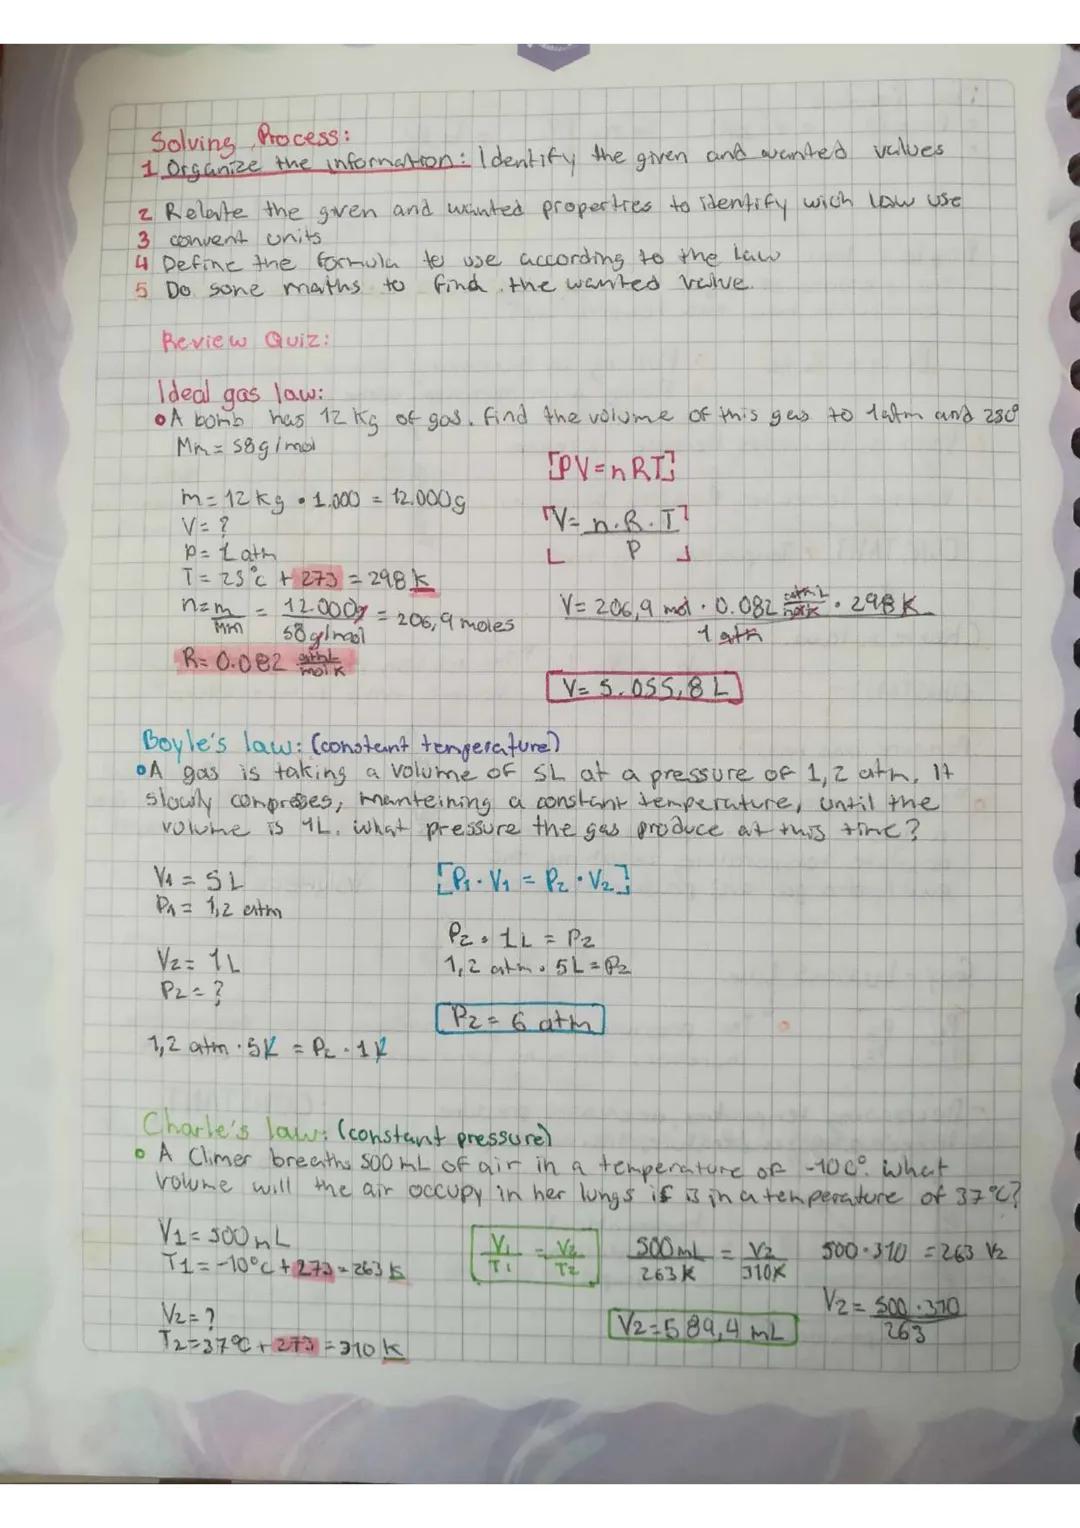 Solving Process:
1 Organize the information: Identify the given and wanted values
2 Relate the given and wanted properties to identify wich law use
3 convert units
4 Define the formula to use according to the law
5 Do some maths to find the wanted value.
Review Quiz:
Ideal gas law:
• A bomb has 12 Kg of gas. Find the volume of this gas to 1atm and 25c°
Mm = 58g/mol
[PV = nRT]
m = 12 Kg • 1.000 = 12.000g
V = ?
[V = n.R.T / P]
P = 1 atm
T = 25°c + 273 = 298 K
n = m/Mm = 12.000g / 58g/mol = 206,9 moles
V = 206,9 mol • 0.082 atm.L/mol.K • 298 K / 1 atm
R = 0.082 atm.L/mol K
V = 5.055,8 L
Boyle's law: (constant temperature)
• A gas is taking a volume of 5L at a pressure of 1,2 atm. It
slowly compreses, manteining a constant temperature, until the
volume is 1L. What pressure the gas produce at this time?
V1 = 5 L
P1 = 1,2 atm
[P1 • V1 = P2 • V2]
V2 = 1 L
P2 = ?
P2 • 1L = P2
1,2 atm • 5L = P2
P2 = 6 atm
1,2 atm • 5L = P2 • 1L
Charle's law: (constant pressure)
• A Climer breaths 500 mL of air in a temperature of -10 C°. What
volume will the air occupy in her lungs if is in a temperature of 37°C?
V1 = 500mL
T1 = -10°c + 273 = 263 K
V1/T1 = V2/T2
500 mL / 263 K = V2 / 310K
500 • 310 = 263 V2
V2 = ?
T2 = 37°C + 273 = 310 K
V2 = 589,4 mL
V2 = 500 • 310 / 263